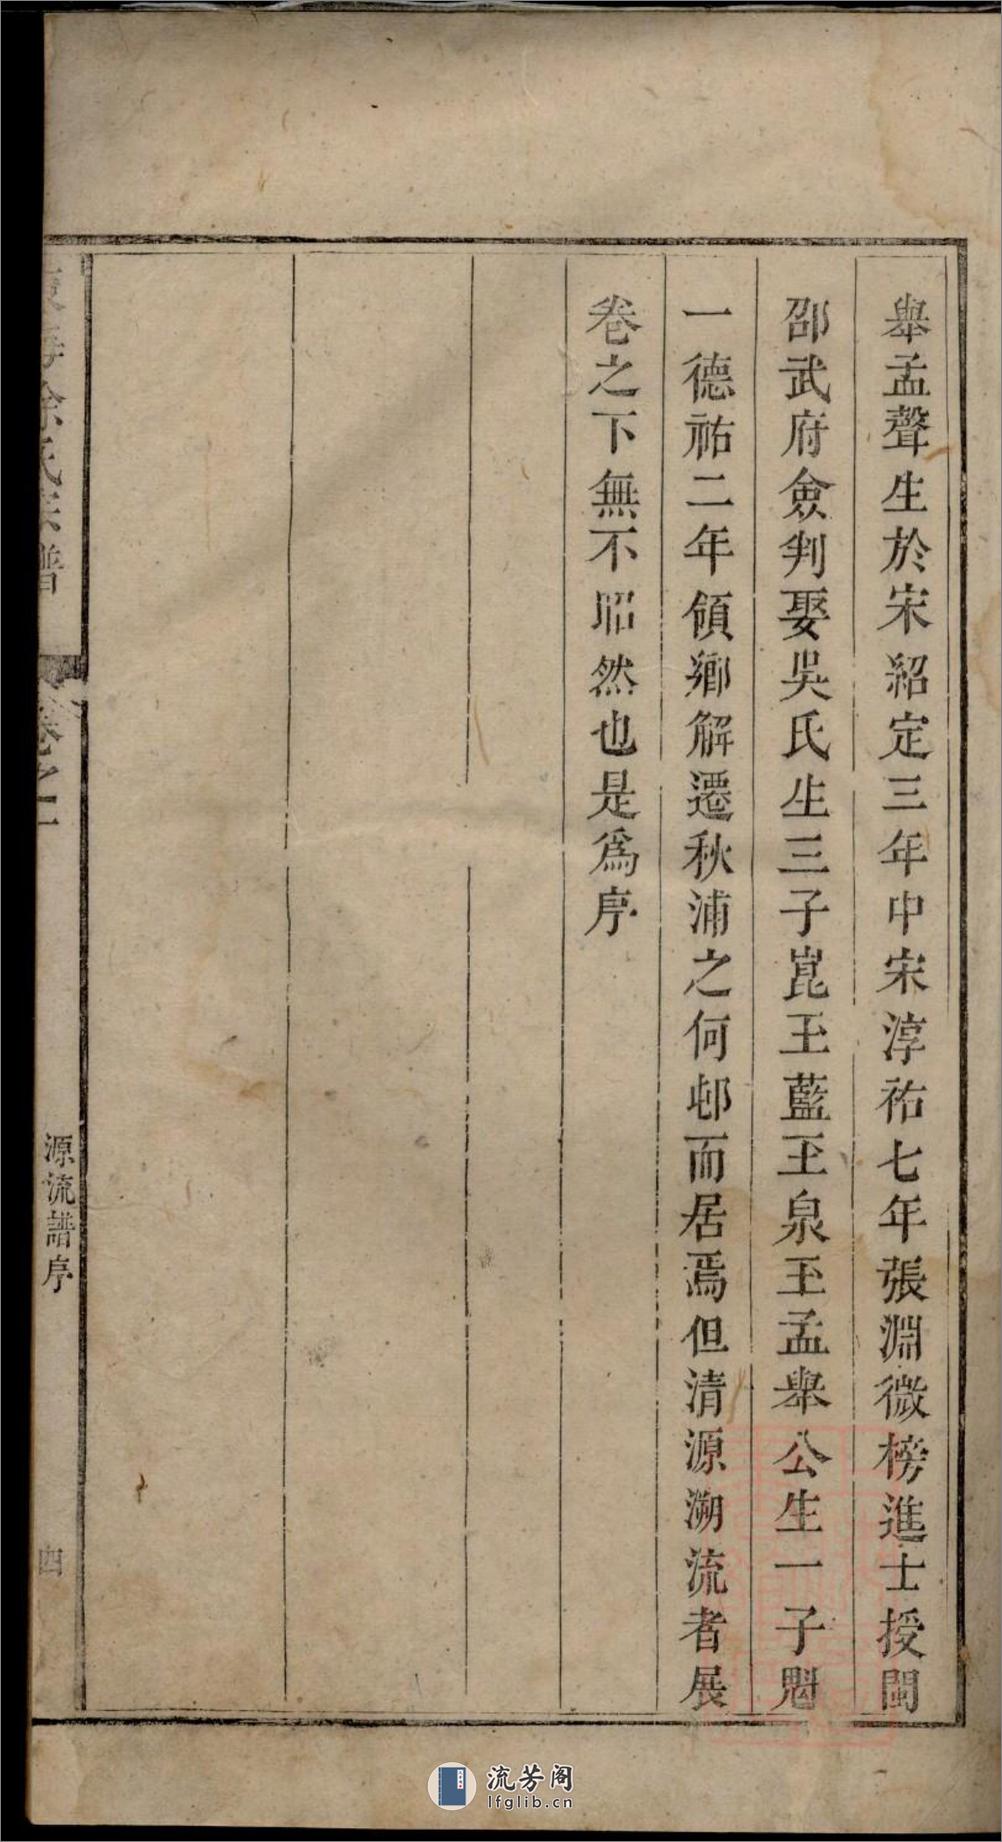 舉孟聲生於宋紹定三年中宋淳祐七年張淵微榜進士授閩
邵武府僉判娶吳氏生三子崑玉藍玉泉玉孟舉公生一子魁
一德祐二年領鄉解遷秋浦之何邨而居焉但清源溯流者展
卷之下無不昭然也是爲序
徐氏宗譜
卷之一
源流譜序
四
流芳阁
lfglib.cn